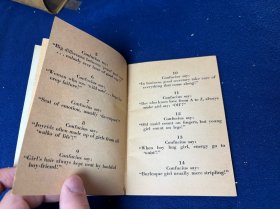 5
Confucius say:
"Big difference between
nobody ever
6
Confucius say:
"Woman who
every failure!"
7
Confucius say:
"Seat of emotion, usually
8
Confucius say:
"Joyride often made up of girls from all
'walks of life'!"
9
Confucius say:
"Girl's hair always kept
boy-friend!"
10
Confucius say:
"In business good overseer take care of
everything that come along."
11
Confucius say:
"Boy who know love from A to Z, always
make and say: 'OH!'"
12
Confucius say:
"Old maid count on fingers, but young
girl count on legs!"
13
Confucius say:
"When boy hug girl, energy go to
'waist'!"
14
Confucius say:
"Burlesque girl usually mere stripling!"